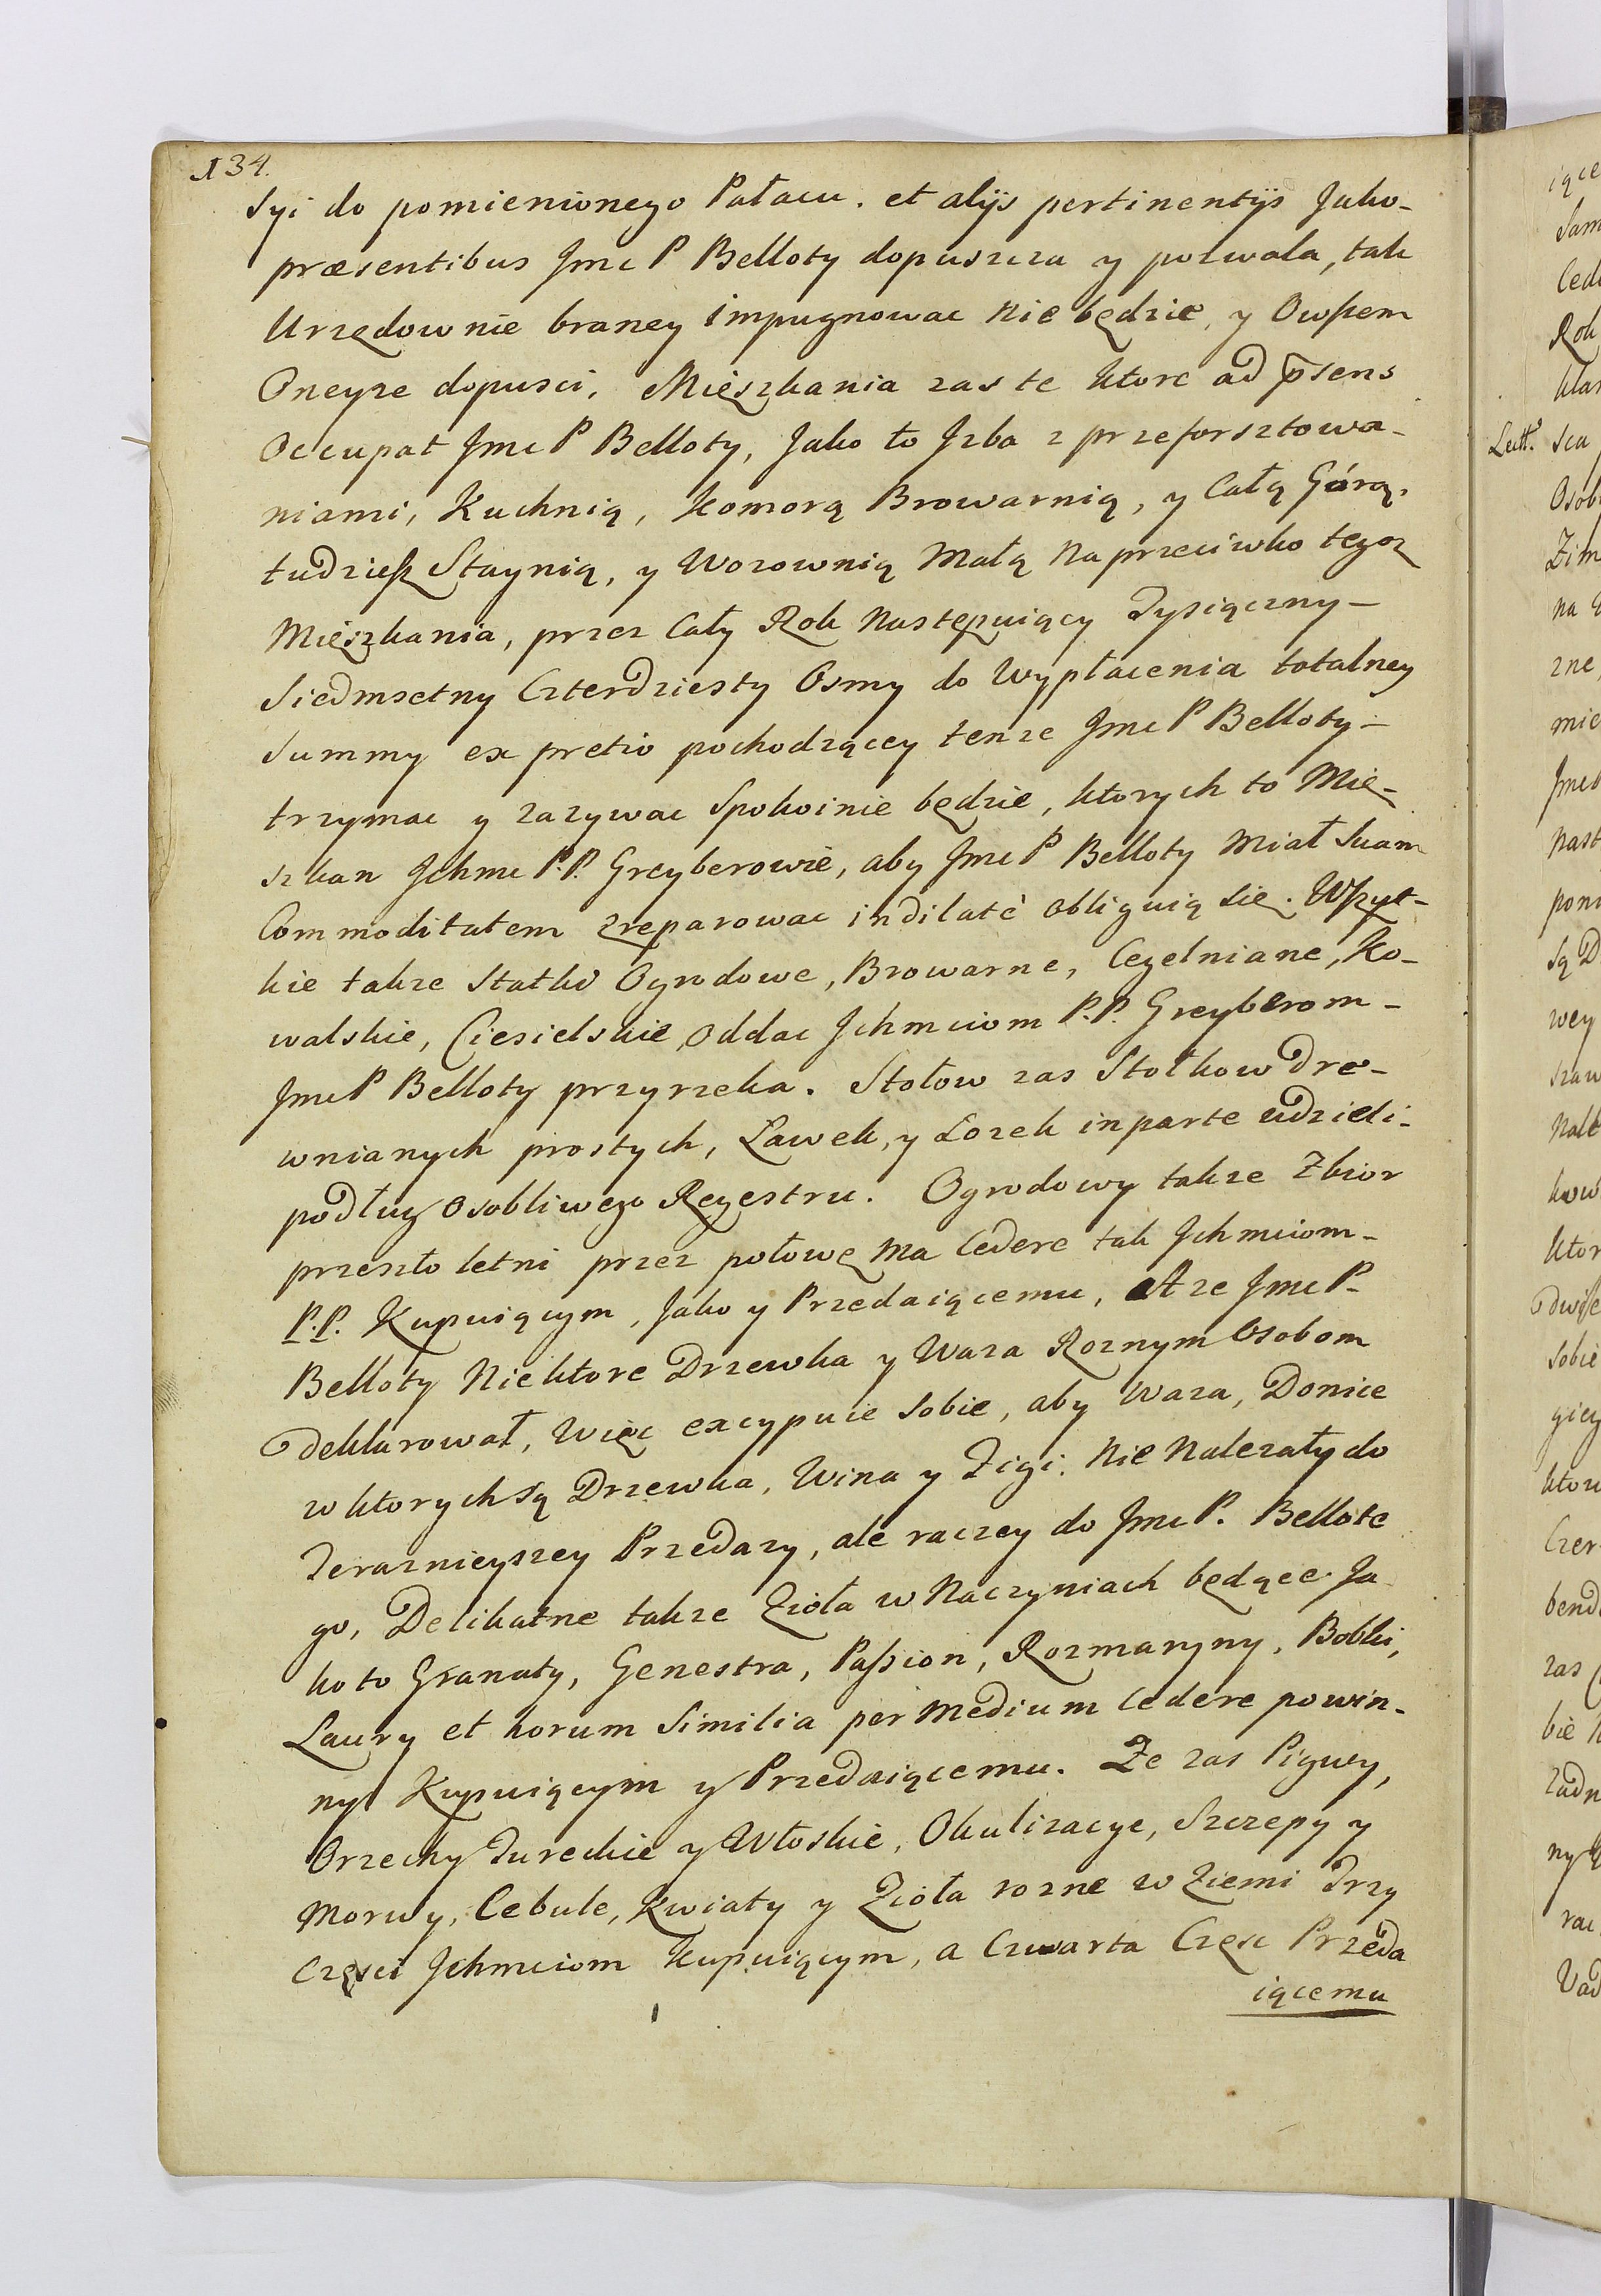 134.
Syi do pomienionego Pałacu. et alijs pertinentijs Jako-
præsentibus Jmc P Belloty dopuszcza y pozwala, tak
Urzędownie braney impugnowac nie będzie, y Owszem
Oneyze dopusci, Mieszkania zas te ktore ad psens
Occupat Jmc P Belloty, Jako to Jzba z przeforsztowa-
niami, Kuchnią, Komorą Browarnią, y Całą Górą,
tudziesz Staynią, y Wozownią Małą naprzeciwko tegoz
Mieszkania, przez Cały Rok Następuiący Tysiączny-
Siedmsetny Czterdziesty Osmy do Wypłacenia totalney
Summy ex pretio pochodzącey tenze Jmc P Belloty-
trzymac y zazywac Spokoinie będzie, ktorych to Mie-
szkan Jchmc P.P. Greyberowie, aby Jmc P Belloty Miał Suam
Commoditatem zreparowac indilatè obliguią się. Wszyt-
kie takze Statki Ogrodowe, Browarne, Cegelniane, Ko-
walskie, Ciesielskie, Oddac Jchmciom P.P. Greyberom-
Jmc P Belloty przyrzeka. Stołow zas Stołkow dre-
wnianych prostych, Ławek, y Łozek in parte udzieli-
podług Osobliwego Regestru. Ogrodowy takze Zbior
przeszło letni przez połowę ma Cedere tak Jchmciom-
P.P. Kupuiącym, Jako y Przedaiącemu, A ze Jmc P-
Belloty Niektore Drzewka y Waza Roznym Osobom
deklarował, Więc excypuie sobie, aby Waza, Donice
w ktorych są Drzewka, Wina y Figi, Nie Nalezały do
Teraznieyszey Przedazy, ale raczey do Jmc P. Bellote
go, Delikatne takze Zioła w Naczyniach będące Ja
ko to Granaty, Genestra, Passion, Rozmaryny, Bobki,
Laury et horum Similia per medium Cedere powin-
ny Kupuiącym y Przedaiącemu. Ze zas Pigwy,
Orzechy Tureckie y Włoskie, Okulizacye, Szczepy y
Morwy, Cebule, Kwiaty y Zioła rozne w Ziemi Trzy
Części Jchmciom Kupuiącym, a Czwarta Częsc Przeda
iącemu